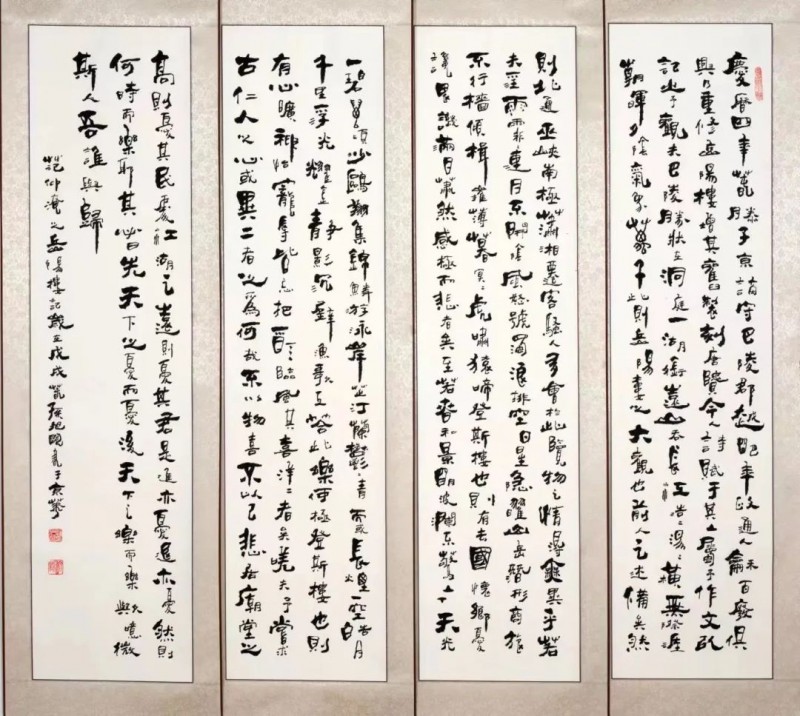 慶曆四年春滕子京謫守巴陵郡越明年政通人和百廢俱
興乃重修岳陽樓增其舊製刻唐賢今人詩賦于其上屬予作文以
記之予觀夫巴陵勝狀在洞庭一湖銜遠山吞長江浩〻湯〻橫無際涯
朝暉夕陰氣象萬千此則岳陽樓之大觀也前人之述備矣然
則北通巫峽南極瀟湘遷客騷人多會於此覽物之情得無異乎若
夫淫雨霏〻連月不開陰風怒號濁浪排空日星隱耀山岳潛形商旅
不行檣傾楫摧薄暮冥〻虎嘯猿啼登斯樓也則有去國懷鄉憂
讒畏譏滿目蕭然感極而悲者矣至若春和景明波瀾不驚上下天光
一碧萬頃沙鷗翔集錦鱗游泳岸芷汀蘭鬱〻青〻而或長煙一空皓月
千里浮光耀金靜影沉璧漁歌互答此樂何極登斯樓也則
有心曠神怡寵辱皆忘把酒臨風其喜洋〻者矣嗟夫予嘗求
古仁人之心或異二者之為何哉不以物喜不以己悲居廟堂之
高則憂其民處江湖之遠則憂其君是進亦憂退亦憂然則
何時而樂耶其必曰先天下之憂而憂後天下之樂而樂歟噫微
斯人吾誰與歸
范仲淹之岳陽樓記歲在戊戌于京華